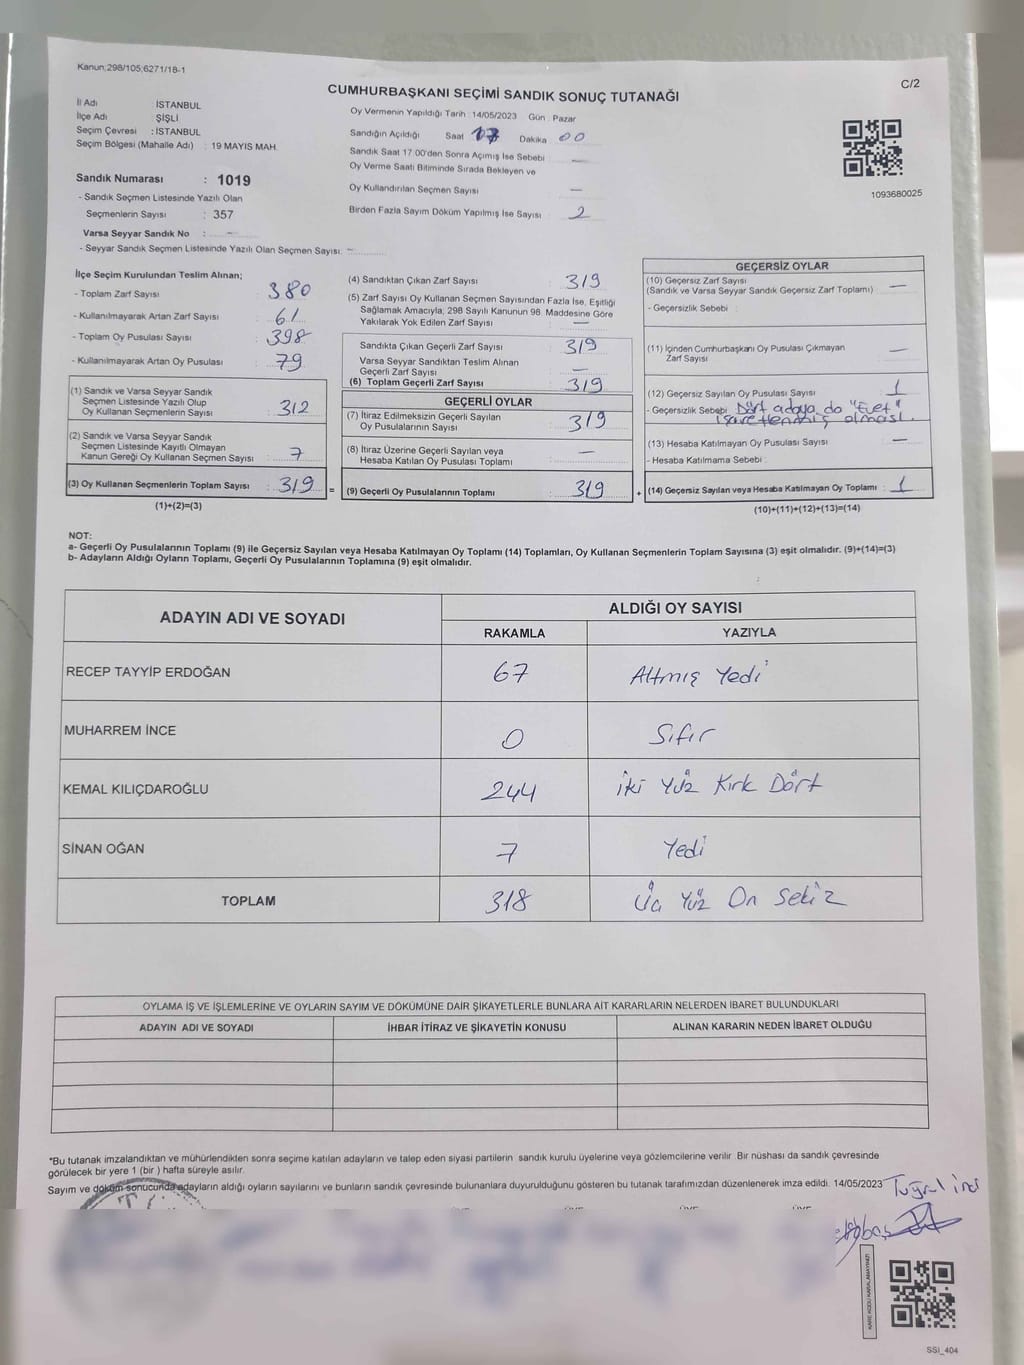 Kanun;298/105;6271/18-1
C/2
CUMHURBAŞKANI SEÇİMİ SANDIK SONUÇ TUTANAĞI
İl Adı İSTANBUL
İlçe Adı ŞİŞLİ
Seçim Çevresi : İSTANBUL
Seçim Bölgesi (Mahalle Adı) : 19 MAYIS MAH.
Sandık Numarası : 1019
- Sandık Seçmen Listesinde Yazılı Olan
Seçmenlerin Sayısı : 357
Varsa Seyyar Sandık No : -
- Seyyar Sandık Seçmen Listesinde Yazılı Olan Seçmen Sayısı: -
Oy Vermenin Yapıldığı Tarih : 14/05/2023 Gün : Pazar
Sandığın Açıldığı Saat 17 Dakika 00
Sandık Saat 17.00'den Sonra Açımış İse Sebebi -
Oy Verme Saati Bitiminde Sırada Bekleyen ve
Oy Kullandırılan Seçmen Sayısı -
Birden Fazla Sayım Döküm Yapılmış İse Sayısı 2
1093680025
İlçe Seçim Kurulundan Teslim Alınan;
- Toplam Zarf Sayısı : 380
- Kullanılmayarak Artan Zarf Sayısı : 61
- Toplam Oy Pusulası Sayısı : 398
- Kullanılmayarak Artan Oy Pusulası : 79
(1) Sandık ve Varsa Seyyar Sandık
Seçmen Listesinde Yazılı Olup
Oy Kullanan Seçmenlerin Sayısı : 312
(2) Sandık ve Varsa Seyyar Sandık
Seçmen Listesinde Kayıtlı Olmayan
Kanun Gereği Oy Kullanan Seçmen Sayısı : 7
(3) Oy Kullanan Seçmenlerin Toplam Sayısı : 319
(1)+(2)=(3)
=
(4) Sandıktan Çıkan Zarf Sayısı : 319
(5) Zarf Sayısı Oy Kullanan Seçmen Sayısından Fazla İse, Eşitliği
Sağlamak Amacıyla, 298 Sayılı Kanunun 98. Maddesine Göre
Yakılarak Yok Edilen Zarf Sayısı : -
Sandıkta Çıkan Geçerli Zarf Sayısı : 319
Varsa Seyyar Sandıktan Teslim Alınan
Geçerli Zarf Sayısı : -
(6) Toplam Geçerli Zarf Sayısı : 319
GEÇERLİ OYLAR
(7) İtiraz Edilmeksizin Geçerli Sayılan
Oy Pusulalarının Sayısı : 319
(8) İtiraz Üzerine Geçerli Sayılan veya
Hesaba Katılan Oy Pusulası Toplamı : -
(9) Geçerli Oy Pusulalarının Toplamı : 319
+
GEÇERSİZ OYLAR
(10) Geçersiz Zarf Sayısı -
(Sandık ve Varsa Seyyar Sandık Geçersiz Zarf Toplamı) :
- Geçersizlik Sebebi :
(11) İçinden Cumhurbaşkanı Oy Pusulası Çıkmayan
Zarf Sayısı -
(12) Geçersiz Sayılan Oy Pusulası Sayısı : 1
- Geçersizlik Sebebi : Dört adaya da "Evet"
işaretlenmiş olması.
(13) Hesaba Katılmayan Oy Pusulası Sayısı : -
- Hesaba Katılmama Sebebi :
(14) Geçersiz Sayılan veya Hesaba Katılmayan Oy Toplamı : 1
(10)+(11)+(12)+(13)=(14)
NOT:
a- Geçerli Oy Pusulalarının Toplamı (9) ile Geçersiz Sayılan veya Hesaba Katılmayan Oy Toplamı (14) Toplamları, Oy Kullanan Seçmenlerin Toplam Sayısına (3) eşit olmalıdır. (9)+(14)=(3)
b- Adayların Aldığı Oyların Toplamı, Geçerli Oy Pusulalarının Toplamına (9) eşit olmalıdır.
ADAYIN ADI VE SOYADI ALDIĞI OY SAYISI
RAKAMLA YAZIYLA
RECEP TAYYİP ERDOĞAN 67 Altmış Yedi
MUHARREM İNCE 0 Sıfır
KEMAL KILIÇDAROĞLU 244 İki Yüz Kırk Dört
SİNAN OĞAN 7 Yedi
TOPLAM 318 Üç Yüz On Sekiz
OYLAMA İŞ VE İŞLEMLERİNE VE OYLARIN SAYIM VE DÖKÜMÜNE DAİR ŞİKAYETLERLE BUNLARA AİT KARARLARIN NELERDEN İBARET BULUNDUKLARI
ADAYIN ADI VE SOYADI İHBAR İTİRAZ VE ŞİKAYETİN KONUSU ALINAN KARARIN NEDEN İBARET OLDUĞU
*Bu tutanak imzalandıktan ve mühürlendikten sonra seçime katılan adayların ve talep eden siyasi partilerin sandık kurulu üyelerine veya gözlemcilerine verilir. Bir nüshası da sandık çevresinde
görülecek bir yere 1 (bir ) hafta süreyle asılır.
Sayım ve döküm sonucunda adayların aldığı oyların sayılarını ve bunların sandık çevresinde bulunanlara duyurulduğunu gösteren bu tutanak tarafımızdan düzenlenerek imza edildi. 14/05/2023
T.C.
KARE KODU KARALAMAYINIZ!
SSI_404